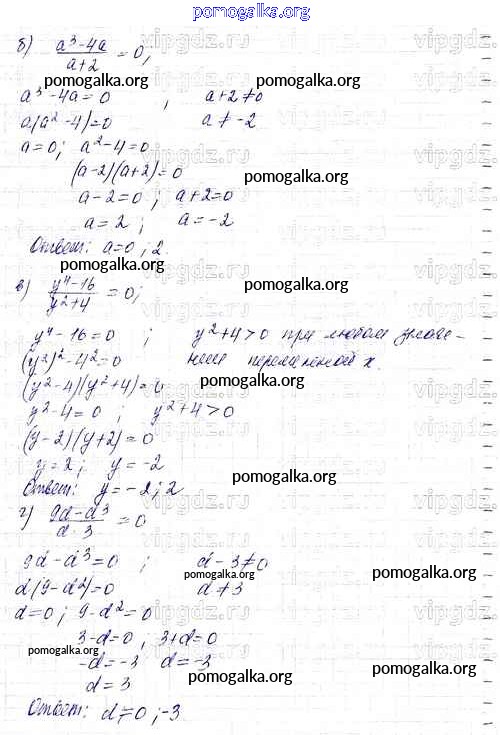 pomogalka.org
б) (a³-4a)/(a+2) = 0;
pomogalka.org pomogalka.org
a³-4a=0 , a+2≠0
a(a²-4)=0 a≠-2
a=0; a²-4=0
(a-2)(a+2)=0 pomogalka.org
a-2=0; a+2=0
a=2; a=-2
Ответ: a=0; 2
pomogalka.org
в) (y⁴-16)/(y²+4) = 0; pomogalka.org
y⁴-16=0 ; y²+4>0 при любом значе-
(y²)²-4²=0 нии переменной x.
(y²-4)(y²+4)=0 pomogalka.org
y²-4=0; y²+4>0
(y-2)(y+2)=0
y=2; y=-2 pomogalka.org
Ответ: y=-2; 2
г) (9d-d³)/(d-3) = 0
9d-d³=0 ; d-3≠0
pomogalka.org pomogalka.org
d(9-d²)=0 d≠3
d=0; 9-d²=0
3-d=0; 3+d=0
pomogalka.org
-d=-3 d=-3 pomogalka.org
d=3
Ответ: d=0; -3
pomogalka.org
vipgdz.ru
vipgdz.ru
vipgdz.ru
vipgdz.ru
vipgdz.ru
vipgdz.ru